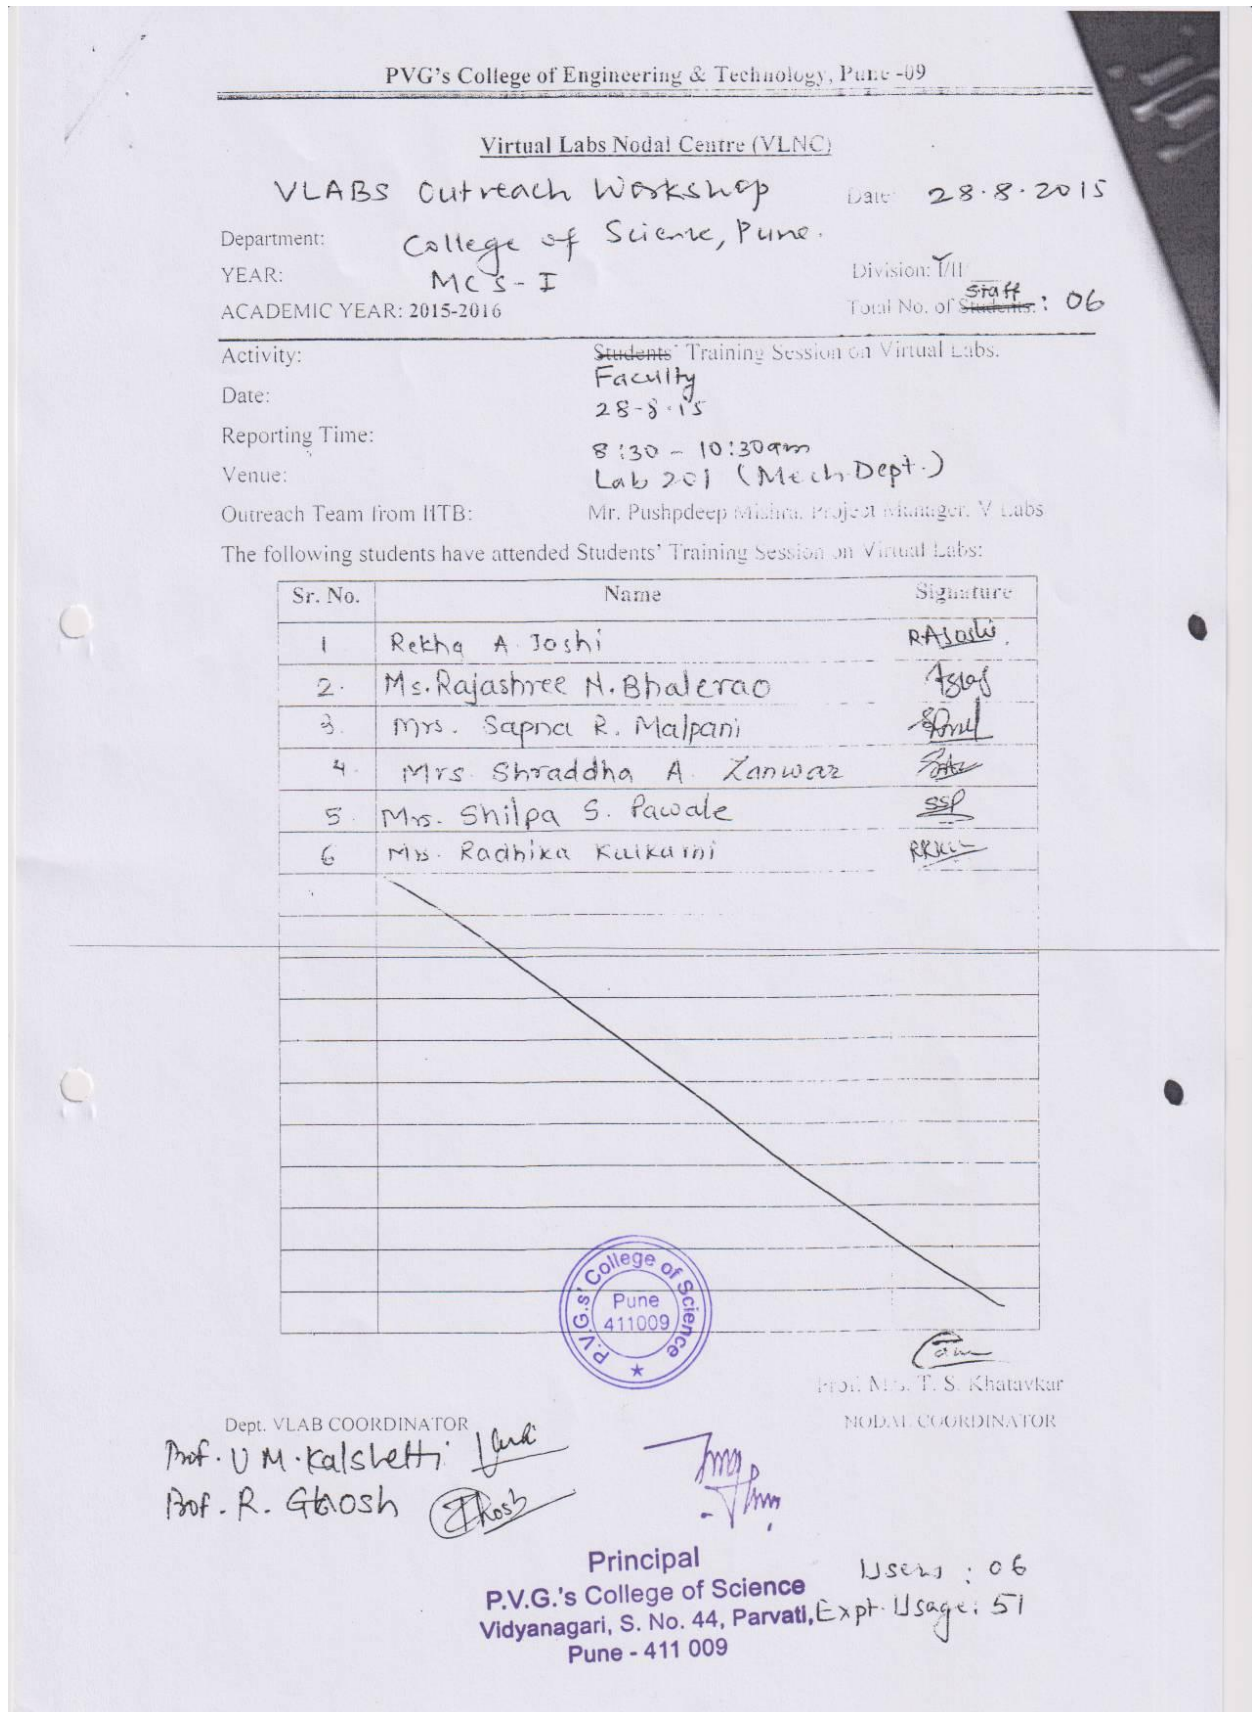 PVG's College of Engineering & Technology, Pune -09
Virtual Labs Nodal Centre (VLNC)
VLABS Outreach Workshop Date: 28.8.2015
Department: College of Science, Pune.
YEAR: MCS-I Division: I/II
ACADEMIC YEAR: 2015-2016 Total No. of Students: Staff : 06
Activity: Students' Training Session on Virtual Labs.
Faculty
Date: 28-8-15
Reporting Time: 8:30 - 10:30am
Venue: Lab 201 (Mech. Dept.)
Outreach Team from IITB: Mr. Pushpdeep Mishra, Project Manager, V Labs
The following students have attended Students' Training Session on Virtual Labs:
Sr. No. Name Signature
1 Rekha A. Joshi RAJoshi.
2. Ms. Rajashree N. Bhalerao
3. Mrs. Sapna R. Malpani
4. Mrs. Shraddha A. Zanwar
5. Mrs. Shilpa S. Pawale SSP
6 Mrs. Radhika Kulkarni
P.V.G.s' College of Science
Pune
411009
Prof. Mrs. T. S. Khatavkar
Dept. VLAB COORDINATOR NODAL COORDINATOR
Prof. U M. Kalshetti
Prof. R. Ghosh
Principal
P.V.G.'s College of Science
Vidyanagari, S. No. 44, Parvati,
Pune - 411 009
Users : 06
Expt. Usage: 51